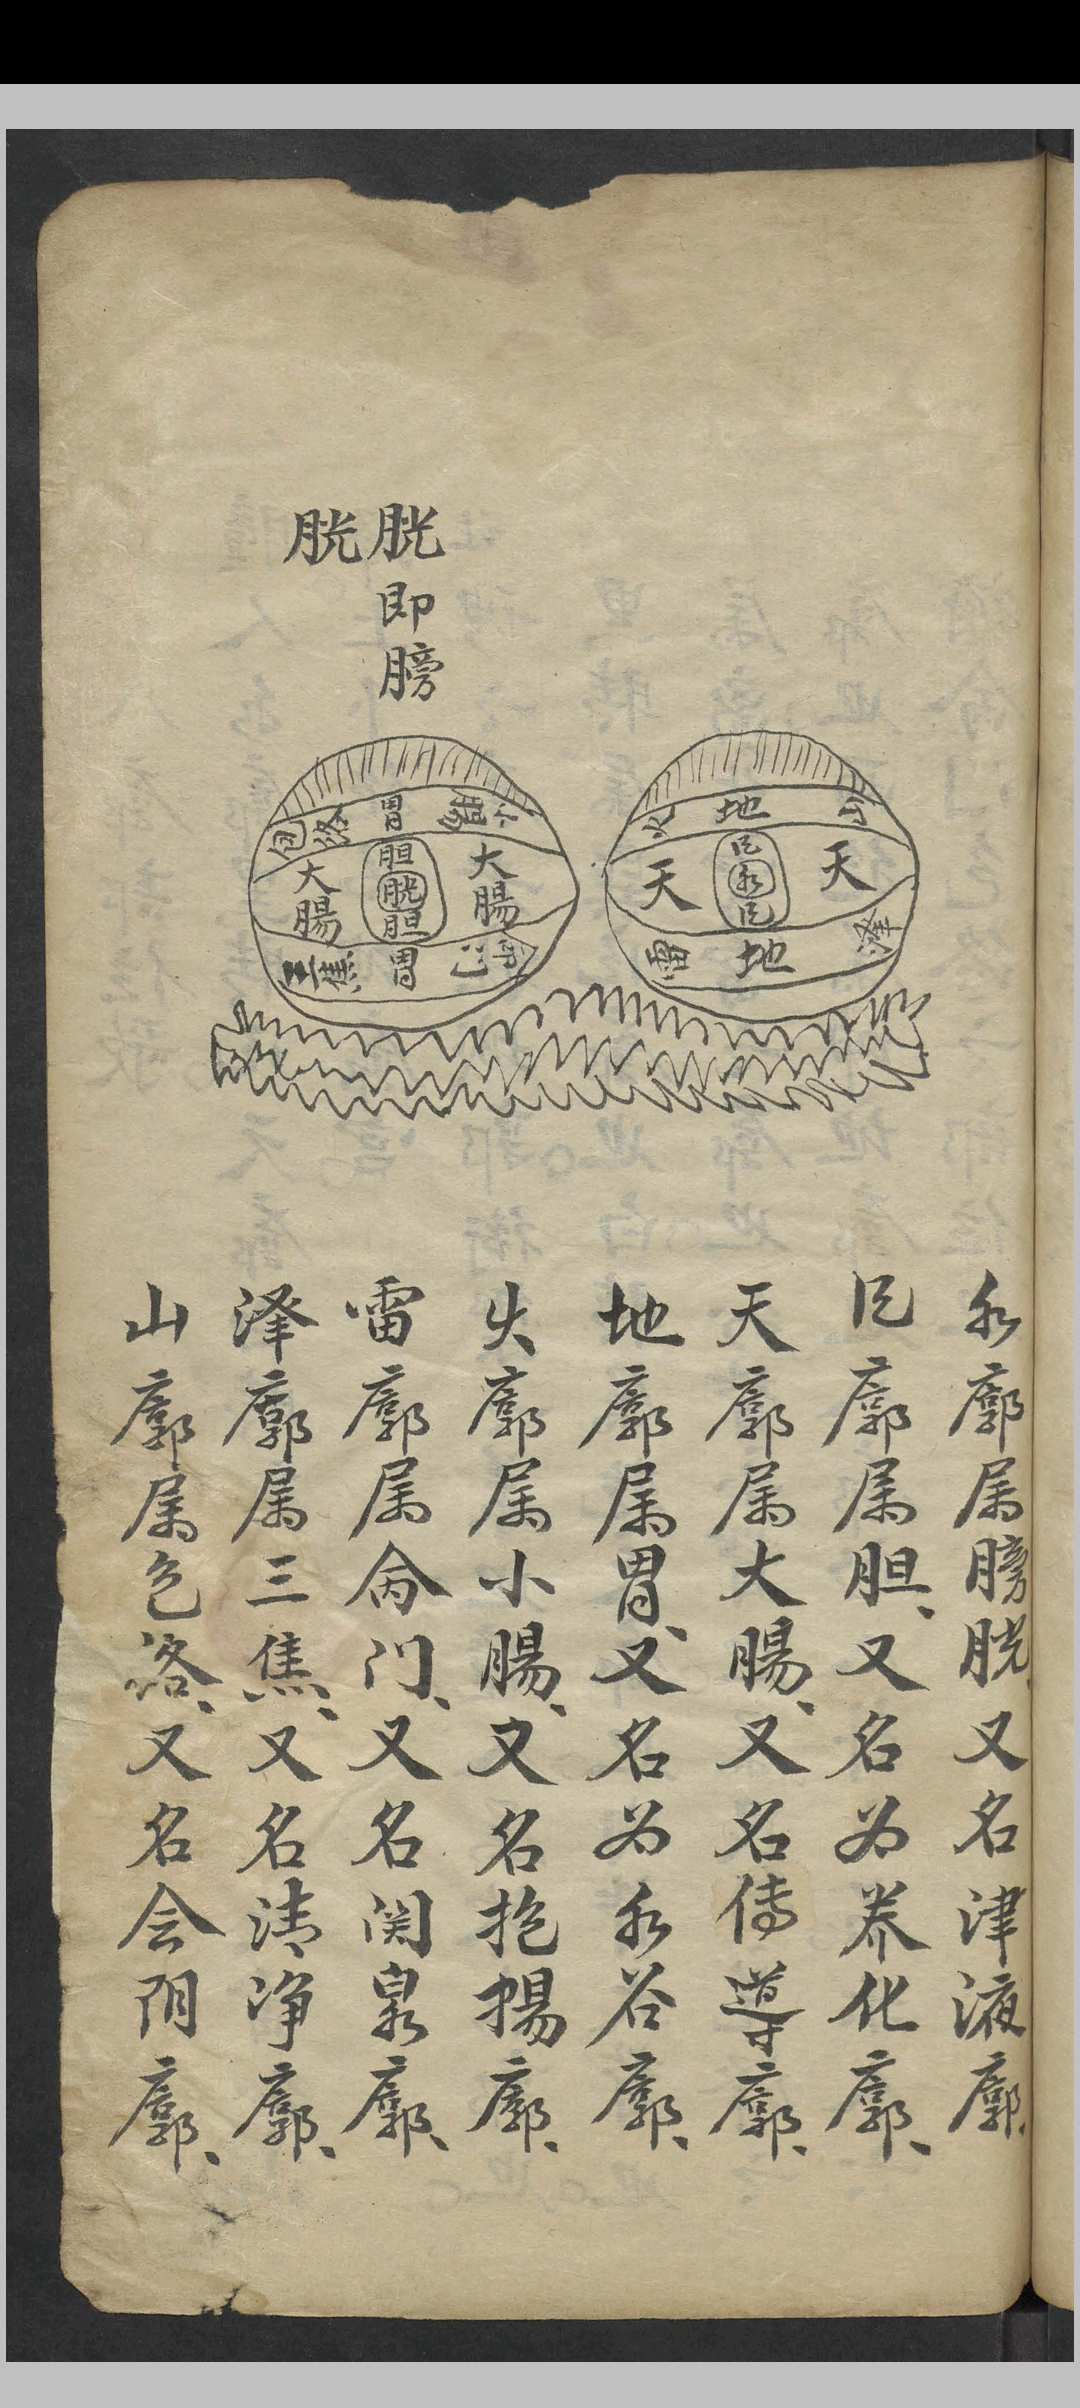 胱即膀
胱
火 地 山
天 风 水 风 天
雷 地 泽
包 络 胃 小 腸
大腸 胆 胱 胆 大腸
三焦 胃 命门
水廓属膀胱、又名津液廓、
风廓属胆、又名为养化廓、
天廓属大腸、又名传導廓、
地廓属胃、又名为水谷廓、
火廓属小腸、又名抱揚廓、
雷廓属命门、又名関泉廓、
泽廓属三焦、又名清净廓、
山廓属包洛、又名会阴廓、